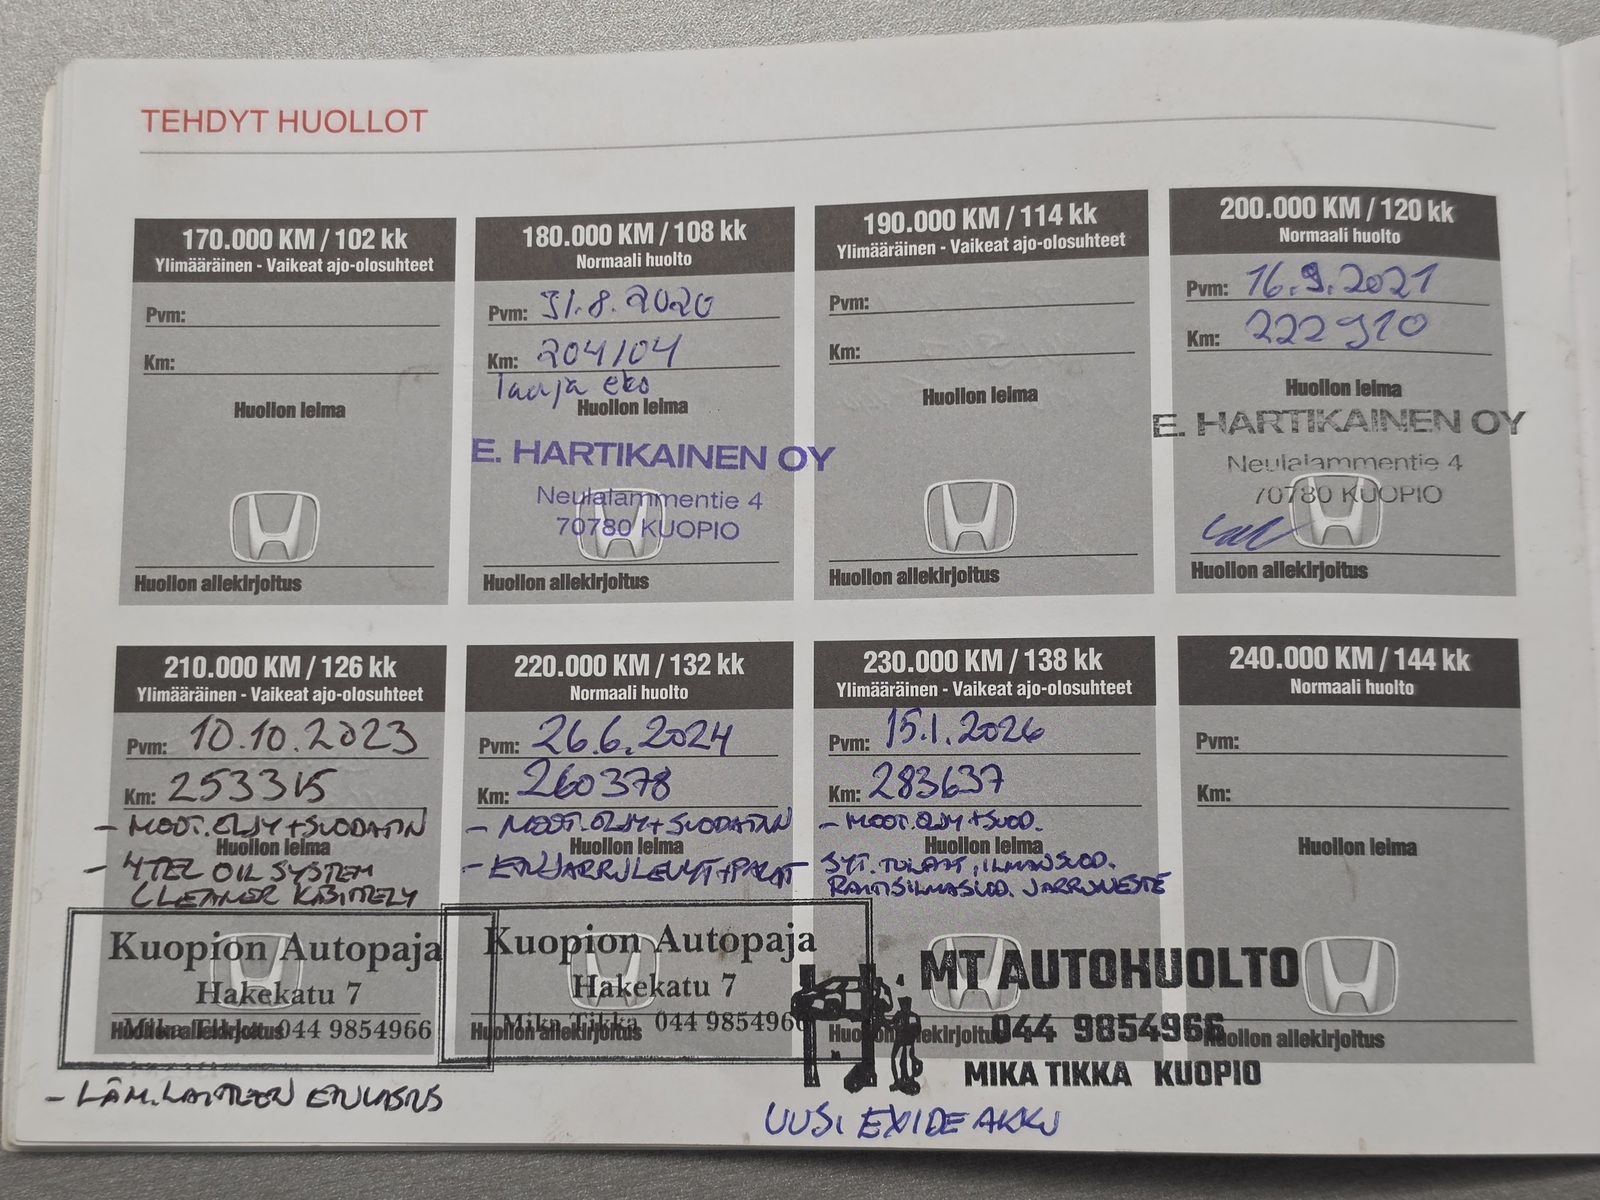 TEHDYT HUOLLOT
170.000 KM / 102 kk
Ylimääräinen - Vaikeat ajo-olosuhteet
Pvm:
Km:
Huollon leima
Huollon allekirjoitus
180.000 KM / 108 kk
Normaali huolto
Pvm: 31.8.2020
Km: 204104
Laaja eko
Huollon leima
E. HARTIKAINEN OY
Neulalammentie 4
70780 KUOPIO
Huollon allekirjoitus
190.000 KM / 114 kk
Ylimääräinen - Vaikeat ajo-olosuhteet
Pvm:
Km:
Huollon leima
Huollon allekirjoitus
200.000 KM / 120 kk
Normaali huolto
Pvm: 16.9.2021
Km: 222910
Huollon leima
E. HARTIKAINEN OY
Neulalammentie 4
70780 KUOPIO
Huollon allekirjoitus
210.000 KM / 126 kk
Ylimääräinen - Vaikeat ajo-olosuhteet
Pvm: 10.10.2023
Km: 253315
- MOOT.ÖLJY+SUODATIN
Huollon leima
- YTEL OIL SYSTEM
CLEANER KÄSITTELY
Kuopion Autopaja
Hakekatu 7
Mika Tikka 044 9854966
Huollon allekirjoitus
- LÄM.LAITTEEN
220.000 KM / 132 kk
Normaali huolto
Pvm: 26.6.2024
Km: 260378
- MOOT.ÖLJY+SUODATIN
Huollon leima
- ETUJARRULEVYT+PALAT
Kuopion Autopaja
Hakekatu 7
Mika Tikka 044 9854966
Huollon allekirjoitus
230.000 KM / 138 kk
Ylimääräinen - Vaikeat ajo-olosuhteet
Pvm: 15.1.2026
Km: 283637
- MOOT.ÖLJY+SUOD.
Huollon leima
SYT.TULPAT, ILMANSUOD.
RAITISILMASUOD. JARRUNESTE
MT AUTOHUOLTO
044 9854966
Huollon allekirjoitus
MIKA TIKKA KUOPIO
UUSI EXIDE AKKU
240.000 KM / 144 kk
Normaali huolto
Pvm:
Km:
Huollon leima
Huollon allekirjoitus